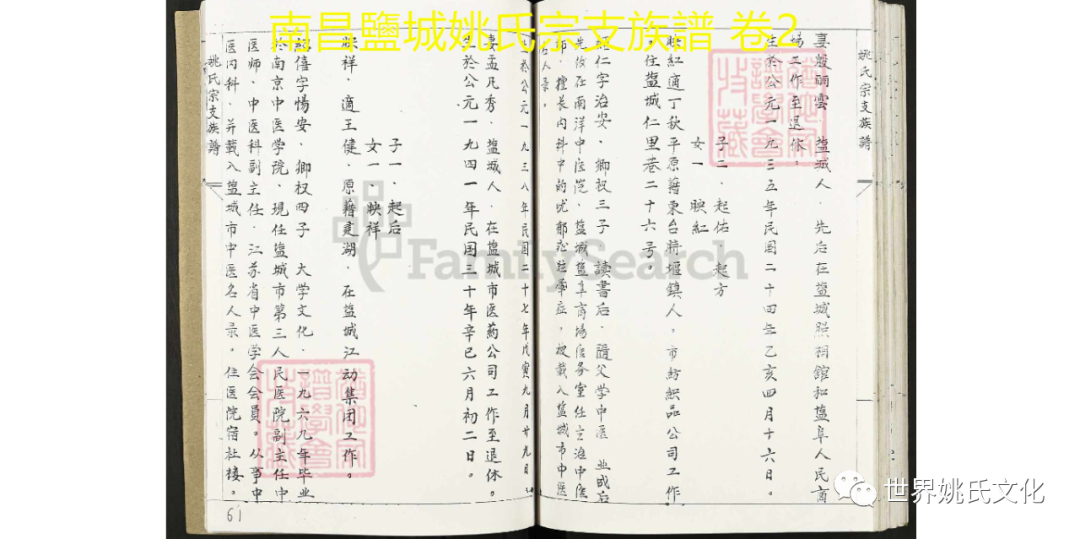 南昌鹽城姚氏宗支族譜 卷2
姚氏宗支族譜
妻殷丽雲 盐城人．先后在盐城照相館和盐阜人民商
場工作至退休．
生於公元一九三五年民国二十四年乙亥四月十六日。
子二．起佑 起方
女一 映紅
映紅適丁秋平原籍東台時堰鎮人．市紡织品公司工作
住盐城仁里巷二十六号．
仁字治安．卿权三子．讀書后．隨父学中医 业成后
先后在南洋中医院．盐城盐阜商場医务室任主治中医
师．擅長内科中的忧郁症脏躁症，被載入盐城市中医
名人录．
公元一九三八年民国二十七年戊寅九月廿九日
妻孟凡秀．盐城人．在盐城市医药公司工作至退休。
生於公元一九四一年民国三十年辛巳六月初二日。
子一．起后
女一．映祥
映祥．適王健．原籍建湖．在盐城江动集团工作。
起僖字惕安．卿权四子 大学文化．一九六九年毕业
於南京中医学院．现任盐城市第三人民医院副主任中
医师．中医科副主任．江苏省中医学会会員。从事中
医内科．并載入盐城市中医名人录．住医院宿祉楼。
姚氏宗支族譜
61
FamilySearch
世界姚氏文化